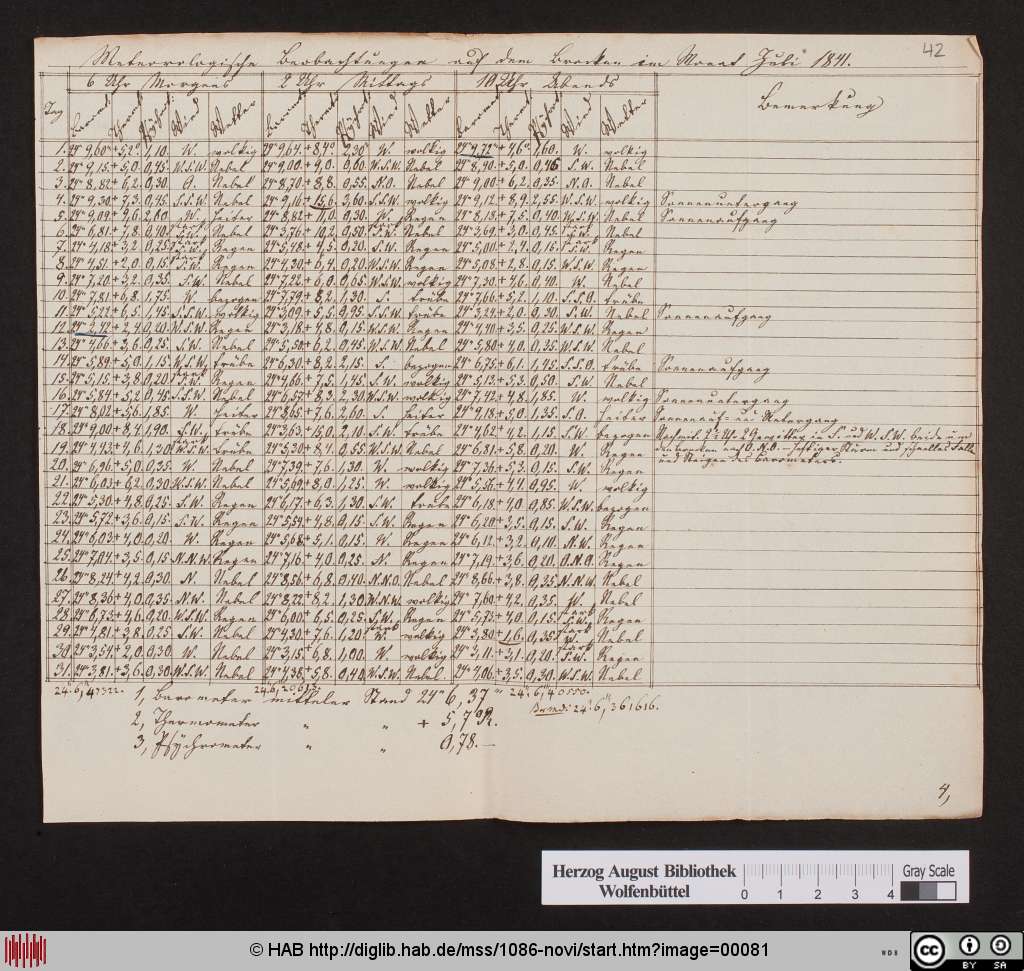 42
Meteorologische Beobachtungen auf dem Brocken im Monat Juli 1841.
6 Uhr Morgens 2 Uhr Mittags 10 Uhr Abends Bemerkung
Tag Wind Wetter Wind Wetter Wind Wetter
1. 24" 9,60 + 5,2° 1,10. W. wolkig 24" 9,64. + 8,4° 2,30 W. wolkig 24" 9,72 + 4,6° 1,60. W. wolkig
2. 24" 9,15. + 5,0. 0,45. W.S.W. Nebel 24" 9,00 + 9,0. 0,60 W.S.W. Nebel 24" 8,90. + 5,0. 0,45 S.W. Nebel
3. 24" 8,82 + 6,2. 0,30. O. Nebel 24" 8,70 + 8,8. 0,55. N.O. Nebel 24" 9,00 + 6,2. 0,35. N.O. Nebel
4. 24" 9,30 + 7,3. 0,45. S.S.W. Nebel 24" 9,16 + 15,6. 3,60. S.S.W. wolkig 24" 9,12 + 8,9. 2,55. W.S.W. wolkig Sonnenuntergang
5. 24" 9,09 + 9,6 2,60 W. heiter 24" 8,82 + 11,0. 0,30. W. Regen 24" 8,18 + 7,5. 0,40. W.S.W. Nebel Sonnenaufgang
6. 24" 6,81 + 7,8. 0,40. Nebel 24" 3,76 + 10,2. 0,50. Nebel 24" 3,69 + 3,0. 0,45. Nebel
7. 24" 4,18 + 3,2. 0,25 Regen 24" 5,48 + 4,5. 0,20. S.W. Regen 24" 5,00 + 2,4. 0,16. S.W. Regen
8. 24" 4,51. + 2,0. 0,15. S.W. Regen 24" 4,30 + 6,4. 0,20. W.S.W. Regen 24" 5,08 + 2,8. 0,15. W.S.W. Regen
9. 24" 7,20 + 3,2. 0,35. S.W. Nebel 24" 7,22 + 6,0. 0,65. W.S.W. wolkig 24" 7,30 + 4,6. 0,40. W. Nebel
10. 24" 7,81 + 6,8. 1,75. W. bezogen 24" 7,79 + 8,2. 1,30. S. trübe 24" 7,66 + 5,2. 1,10. S.S.O. trübe
11. 24" 5,22 + 6,5. 1,45. S.S.W. wolkig 24" 3,09 + 5,5. 0,95. S.S.W. trübe 24" 3,24 + 2,0. 0,30. S.W. Nebel Sonnenaufgang
12. 24" 2,42 + 2,4. 0,20. W.S.W. Regen 24" 3,18 + 4,8. 0,15 W.S.W. Regen 24" 4,40 + 3,5. 0,25. W.S.W. Regen
13. 24" 4,66 + 3,6. 0,25. S.W. Nebel 24" 5,50 + 6,2. 0,45. W.S.W. Nebel 24" 5,80 + 4,0. 0,35. W.S.W. Nebel
14. 24" 5,89 + 5,0. 1,15. W.S.W. trübe 24" 6,30 + 8,2. 2,15. S. bezogen 24" 6,75 + 6,1. 1,45. S.S.O. trübe Sonnenaufgang
15. 24" 5,15. + 3,8. 0,20 S.W. Regen 24" 4,66 + 7,5. 1,45. S.W. wolkig 24" 5,13 + 5,3. 0,50. S.W. Nebel
16. 24" 5,84 + 5,2. 0,45. S.S.W. Nebel 24" 6,57 + 8,3. 2,30. W.S.W. wolkig 24" 7,42 + 4,8. 1,85. W. wolkig Sonnenuntergang
17. 24" 8,02 + 5,6. 1,85. W. heiter 24" 8,65 + 7,6. 2,60. S. heiter 24" 9,18 + 5,0. 1,35. S.O. heiter Sonnenauf- und Untergang
18. 24" 9,00 + 8,4. 1,90. S.W. trübe 24" 3,63. + 15,0. 2,10. S.W. trübe 24" 4,62 + 4,2. 1,15. S.W. bezogen
19. 24" 4,43 + 4,6. 1,30 W.S.W. trübe 24" 5,30 + 8,4. 0,55. W.S.W. Nebel 24" 6,81 + 5,8. 0,20. W. Regen
und Steigen des Barometers.
20. 24" 6,96 + 5,0. 0,35. W. Nebel 24" 7,39 + 7,6. 1,30. W. wolkig 24" 7,36 + 5,3. 0,15. S.W. Regen
21. 24" 6,03 + 6,2. 0,30 W.S.W. Nebel 24" 5,69 + 8,0. 1,25. W. wolkig 24" 5,56 + 4,4. 0,95. W. wolkig
22. 24" 5,30 + 4,8. 0,25. S.W. Regen 24" 6,17 + 6,3. 1,30. S.W. trübe 24" 6,18 + 4,0. 0,85. W.S.W. bezogen
23. 24" 5,72 + 3,6. 0,15. S.W. Regen 24" 5,54 + 4,8. 0,15. S.W. Regen 24" 6,20 + 3,5. 0,15. S.W. Regen
24. 24" 6,03 + 4,0. 0,20. W. Regen 24" 5,68 + 5,1. 0,15. W. Regen 24" 6,12 + 3,2. 0,10. N.W. Regen
25. 24" 7,04 + 3,5. 0,15 N.N.W. Regen 24" 7,16 + 4,0. 0,25. N. Regen 24" 7,19 + 3,6. 0,20. O.N.O. Regen
26. 24" 8,24 + 4,2. 0,30. N. Nebel 24" 8,56 + 6,8. 0,40. N.N.O. Nebel 24" 8,66 + 3,8. 0,35 N.N.W. Nebel
27. 24" 8,36 + 4,0. 0,35. N.W. Nebel 24" 8,22 + 8,2. 1,30 W.N.W. wolkig 24" 7,60 + 4,2. 0,35. W. Nebel
28. 24" 6,73 + 4,6. 0,20. W.S.W. Regen 24" 6,00 + 6,5. 0,25. S.W. Regen 24" 5,73 + 4,0. 0,15. S.W. Regen
29. 24" 4,81 + 3,8. 0,25. S.W. Nebel 24" 4,30 + 7,6. 1,20 W. wolkig 24" 3,80 + 1,6. 0,35 W. Nebel
30. 24" 3,54 + 2,0. 0,30. W. Nebel 24" 3,15 + 6,8. 1,00. W. wolkig 24" 3,11. + 3,1. 0,20. S.W. Regen
31. 24" 3,81. + 3,6. 0,30. W.S.W. Nebel 24" 4,38 + 5,8. 0,40. W.S.W. Nebel 24" 4,06. + 3,5. 0,30. W.S.W. Nebel
1, Barometer mittlerer Stand 24" 6,37"
24. 6, 361616.
2, Thermometer " " + 5,792.
3, Psychrometer " " 0,78. —
4,
Herzog August Bibliothek
Wolfenbüttel
0 1 2 3 4
Gray Scale
© HAB http://diglib.hab.de/mss/1086-novi/start.htm?image=00081
WDB
CC BY SA